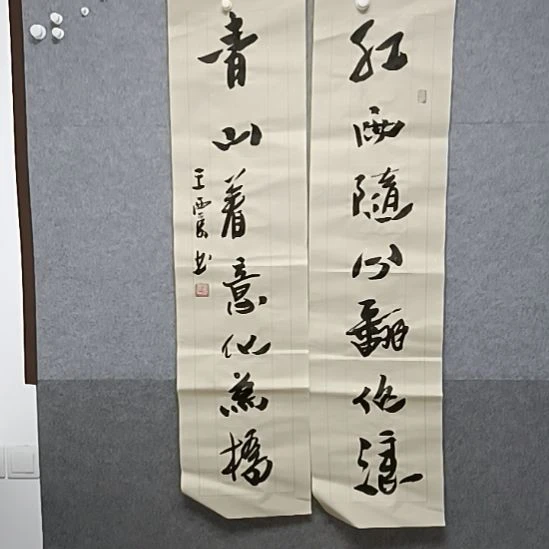 红雨随心翻作浪
青山着意化为桥
王西震书